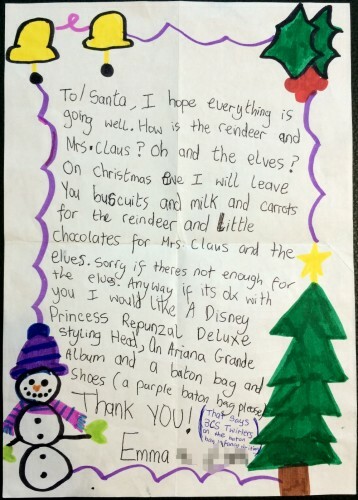 To/ Santa, I hope everything is
going well. How is the reindeer and
Mrs. Claus? Oh and the elves?
On Christmas Eve I will leave
You buscuits and milk and carrots
for the reindeer and Little
chocolates for Mrs. Claus and the
elves. Sorry if theres not enough for
the elves. Anyway if its ok with
you I would like A Disney
Princess Repunzal Deluxe
styling Head, An Ariana Grande
Album and a baton bag and
Shoes (a purple baton bag please
Thank YOU! (That Says
BCS Twirlers
on the baton
bag
Emma